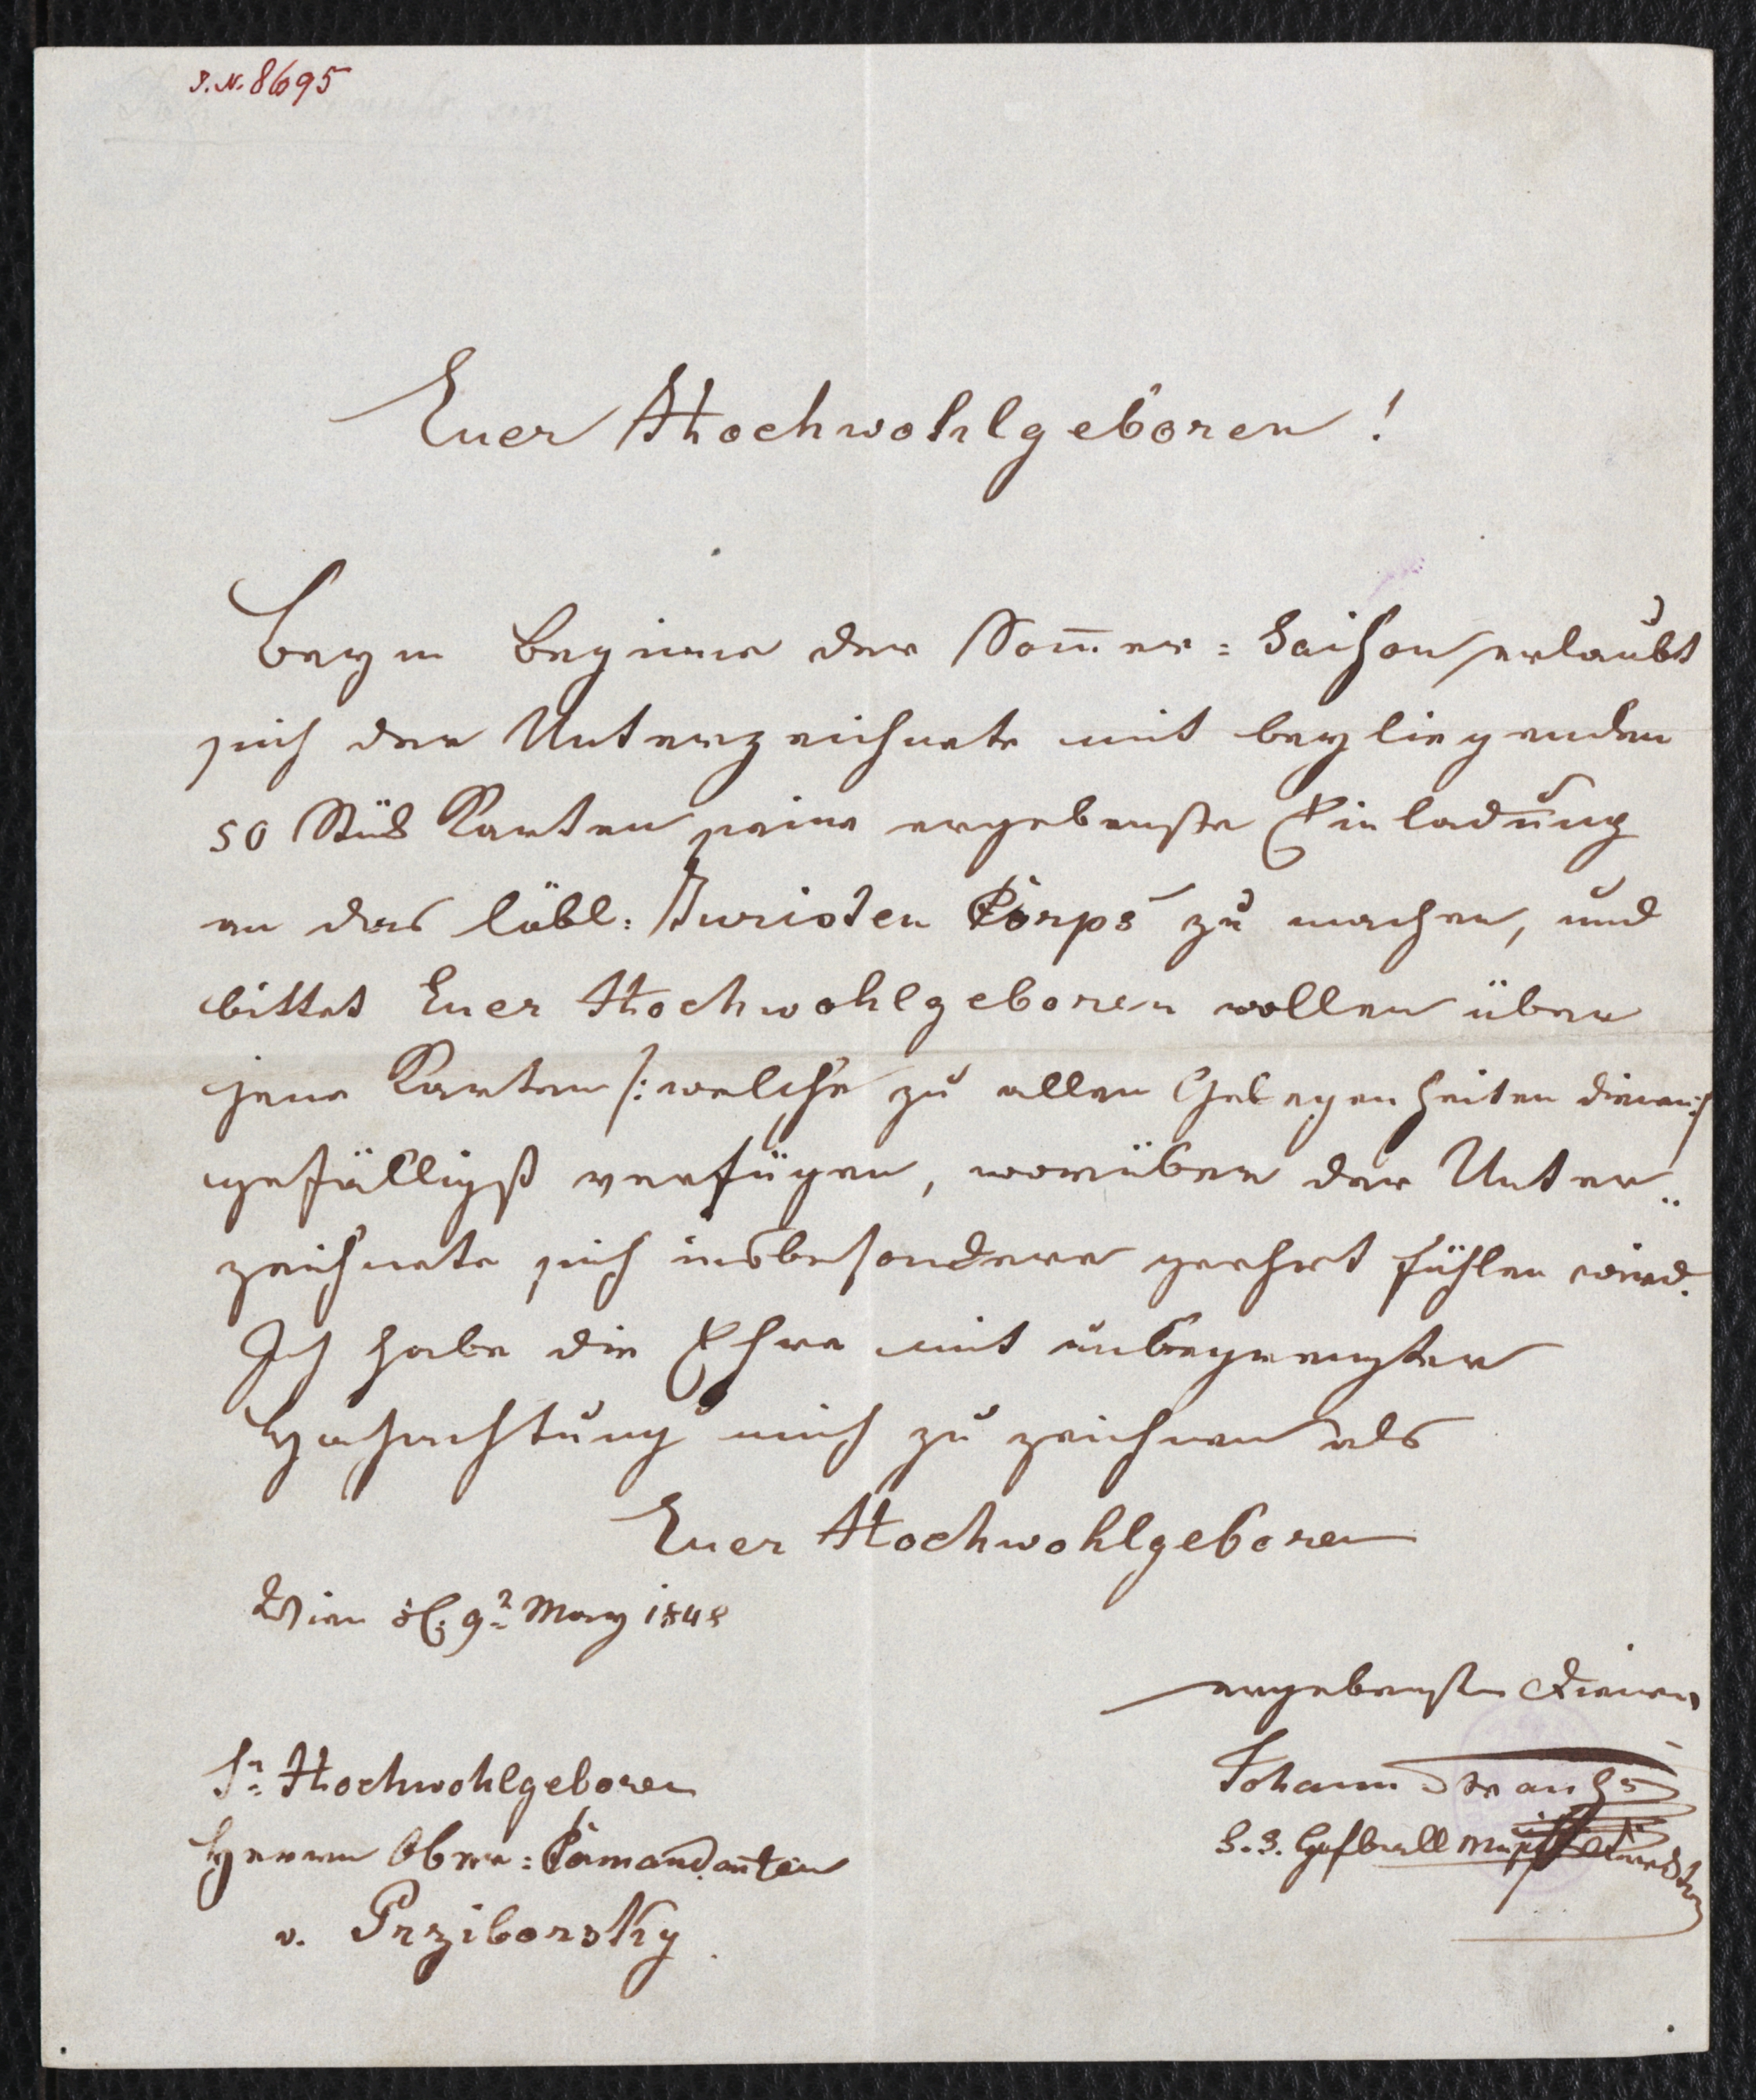 J.N. 8695
Euer Hochwohlgeboren!
Beym Beginne der Som̅er=Saison erlaubt
sich der Unterzeichnete mit beyliegenden
50 Stük Karten seine ergebenste Einladung
an das löbl: Juristen Corps zu machen, und
bittet Euer Hochwohlgeboren wollen über
jene Karten /: welche zu allen Gelegenheiten dienen :/
gefälligst verfügen, worüber der Unter„
zeichnete sich insbesondere geehrt fühlen wird.
Ich habe die Ehre mit unbegrenzter
Hochachtung mich zu zeichnen als
Euer Hochwohlgeboren
Wien d. 9t May 1848
ergebenster Diener
Johann Strauß
k. k. Hofball Musik Direktor
Sr Hochwohlgeboren
Herrn Ober=Comandanten
v. Prziborsky.